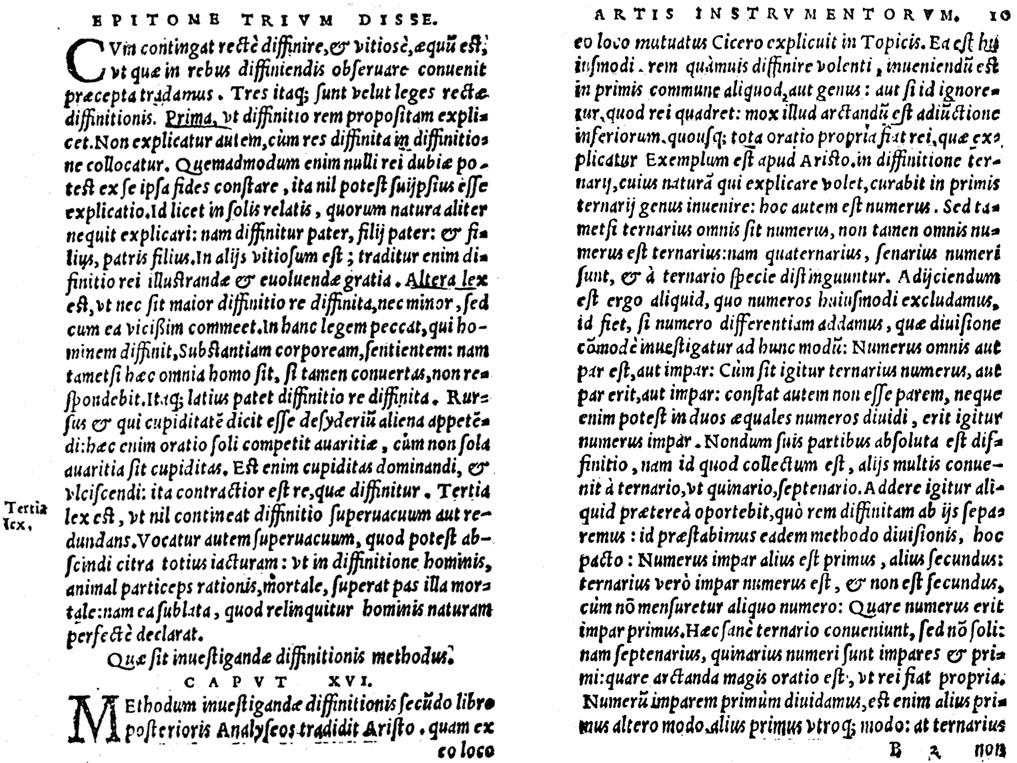 EPITOME TRIVM DISSE.
CVm contingat rectè diffinire, & vitiosè, æquũ est,
vt quæ in rebus diffiniendis obseruare conuenit
præcepta tradamus. Tres itaq; sunt velut leges rectæ
diffinitionis. Prima, vt diffinitio rem propositam expli-
cet. Non explicatur autem, cùm res diffinita in diffinitio-
ne collocatur. Quemadmodum enim nulli rei dubiæ po-
test ex se ipsa fides constare, ita nil potest suijpsius esse
explicatio. Id licet in solis relatis, quorum natura aliter
nequit explicari: nam diffinitur pater, filij pater: & fi-
lius, patris filius. In alijs vitiosum est; traditur enim di-
finitio rei illustrandæ & euoluendæ gratia. Altera lex
est, vt nec sit maior diffinitio re diffinita, nec minor, sed
cum ea vicißim commeet. In hanc legem peccat, qui ho-
minem diffinit, Substantiam corpoream, sentientem: nam
tametsi hæc omnia homo sit, si tamen conuertas, non re-
spondebit. Itaq; latius patet diffinitio re diffinita. Rur-
sus & qui cupiditatẽ dicit esse desyderiũ aliena appetẽ-
di: hæc enim oratio soli competit auaritiæ, cùm non sola
auaritia sit cupiditas. Est enim cupiditas dominandi, &
vlciscendi: ita contractior est re, quæ diffinitur. Tertia
Tertia
lex.
lex est, vt nil contineat diffinitio superuacuum aut re-
dundans. Vocatur autem superuacuum, quod potest ab-
scindi citra totius iacturam: vt in diffinitione hominis,
animal particeps rationis, mortale, superat pas illa mor-
tale: nam ea sublata, quod relinquitur hominis naturam
perfectè declarat.
Quæ sit inuestigandæ diffinitionis methodus.
CAPVT XVI.
MEthodum inuestigandæ diffinitionis secũdo libro
posterioris Analyseos tradidit Aristo. quam ex
eo loco
ARTIS INSTRVMENTORVM. 10
eo loco mutuatus Cicero explicuit in Topicis. Ea est hu
iusmodi. rem quàmuis diffinire volenti, inueniendũ est
in primis commune aliquod, aut genus: aut si id ignore-
tur, quod rei quadret: mox illud arctandũ est adiuctione
inferiorum. quousq; tota oratio propria fiat rei, quæ ex-
plicatur Exemplum est apud Aristo. in diffinitione ter-
narij, cuius naturã qui explicare volet, curabit in primis
ternarij genus inuenire: hoc autem est numerus. Sed ta-
metsi ternarius omnis sit numerus, non tamen omnis nu-
merus est ternarius: nam quaternarius, senarius numeri
sunt, & à ternario specie distinguuntur. Adijciendum
est ergo aliquid, quo numeros huiusmodi excludamus,
id fiet, si numero differentiam addamus, quæ diuisione
cõmodè inuestigatur ad hunc modũ: Numerus omnis aut
par est, aut impar: Cùm sit igitur ternarius numerus, aut
par erit, aut impar: constat autem non esse parem, neque
enim potest in duos æquales numeros diuidi, erit igitur
numerus impar. Nondum suis partibus absoluta est dif-
finitio, nam id quod collectum est, alijs multis conue-
nit à ternario, vt quinario, septenario. Addere igitur ali-
quid prætereà oportebit, quò rem diffinitam ab ijs sepa-
remus: id præstabimus eadem methodo diuisionis, hoc
pacto: Numerus impar alius est primus, alius secundus:
ternarius verò impar numerus est, & non est secundus,
cùm nõ mensuretur aliquo numero: Quare numerus erit
impar primus. Hæc sanè ternario conueniunt, sed nõ soli:
nam septenarius, quinarius numeri sunt impares & pri-
mi: quare arctanda magis oratio est, vt rei fiat propria.
Numerũ imparem primùm diuidamus, est enim alius pri-
mus altero modo, alius primus vtroq; modo: at ternarius
B 2 non